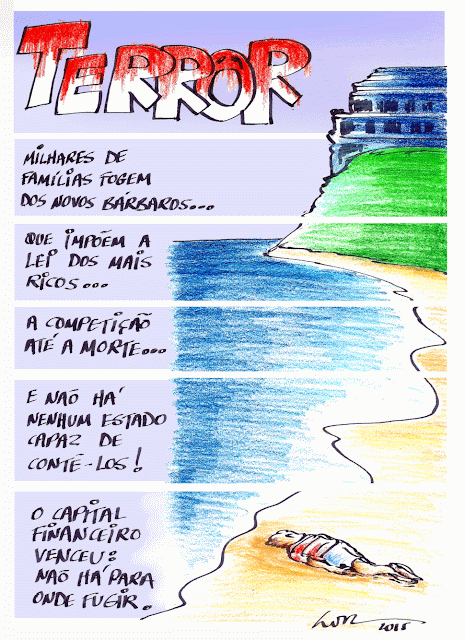 TERROR
MILHARES DE
FAMÍLIAS FOGEM
DOS NOVOS BÁRBAROS...
QUE IMPÕEM A
LEI DOS MAIS
RICOS...
A COMPETIÇÃO
ATÉ A MORTE...
E NAÕ HÁ
NENHUM ESTADO
CAPAZ DE
CONTÊ-LOS!
O CAPITAL
FINANCEIRO
VENCEU:
NAÕ HÁ PARA
ONDE FUGIR.
2015